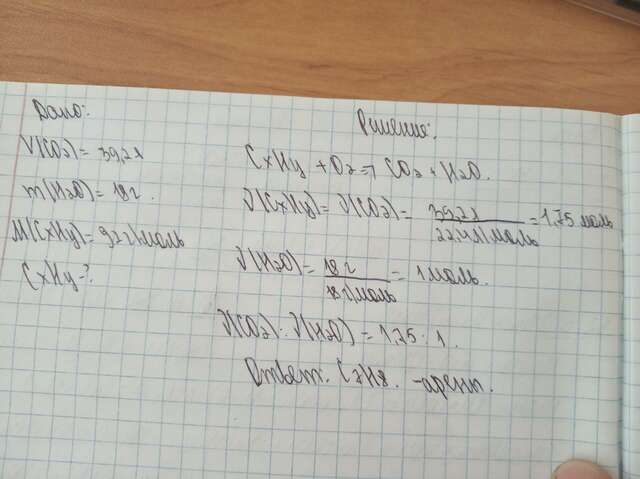 Дано:
V(CO2) = 39,2 л
m(H2O) = 18 г.
M(CxHy) = 92 г/моль
CxHy - ?
Решение:
CxHy + O2 => CO2 + H2O.
ν(CxHy) = ν(CO2) = 39,2 л / 22,4 л/моль = 1,75 моль
ν(H2O) = 18 г / 18 г/моль = 1 моль.
ν(CO2) : ν(H2O) = 1,75 : 1.
Ответ: C7H8. - арены.